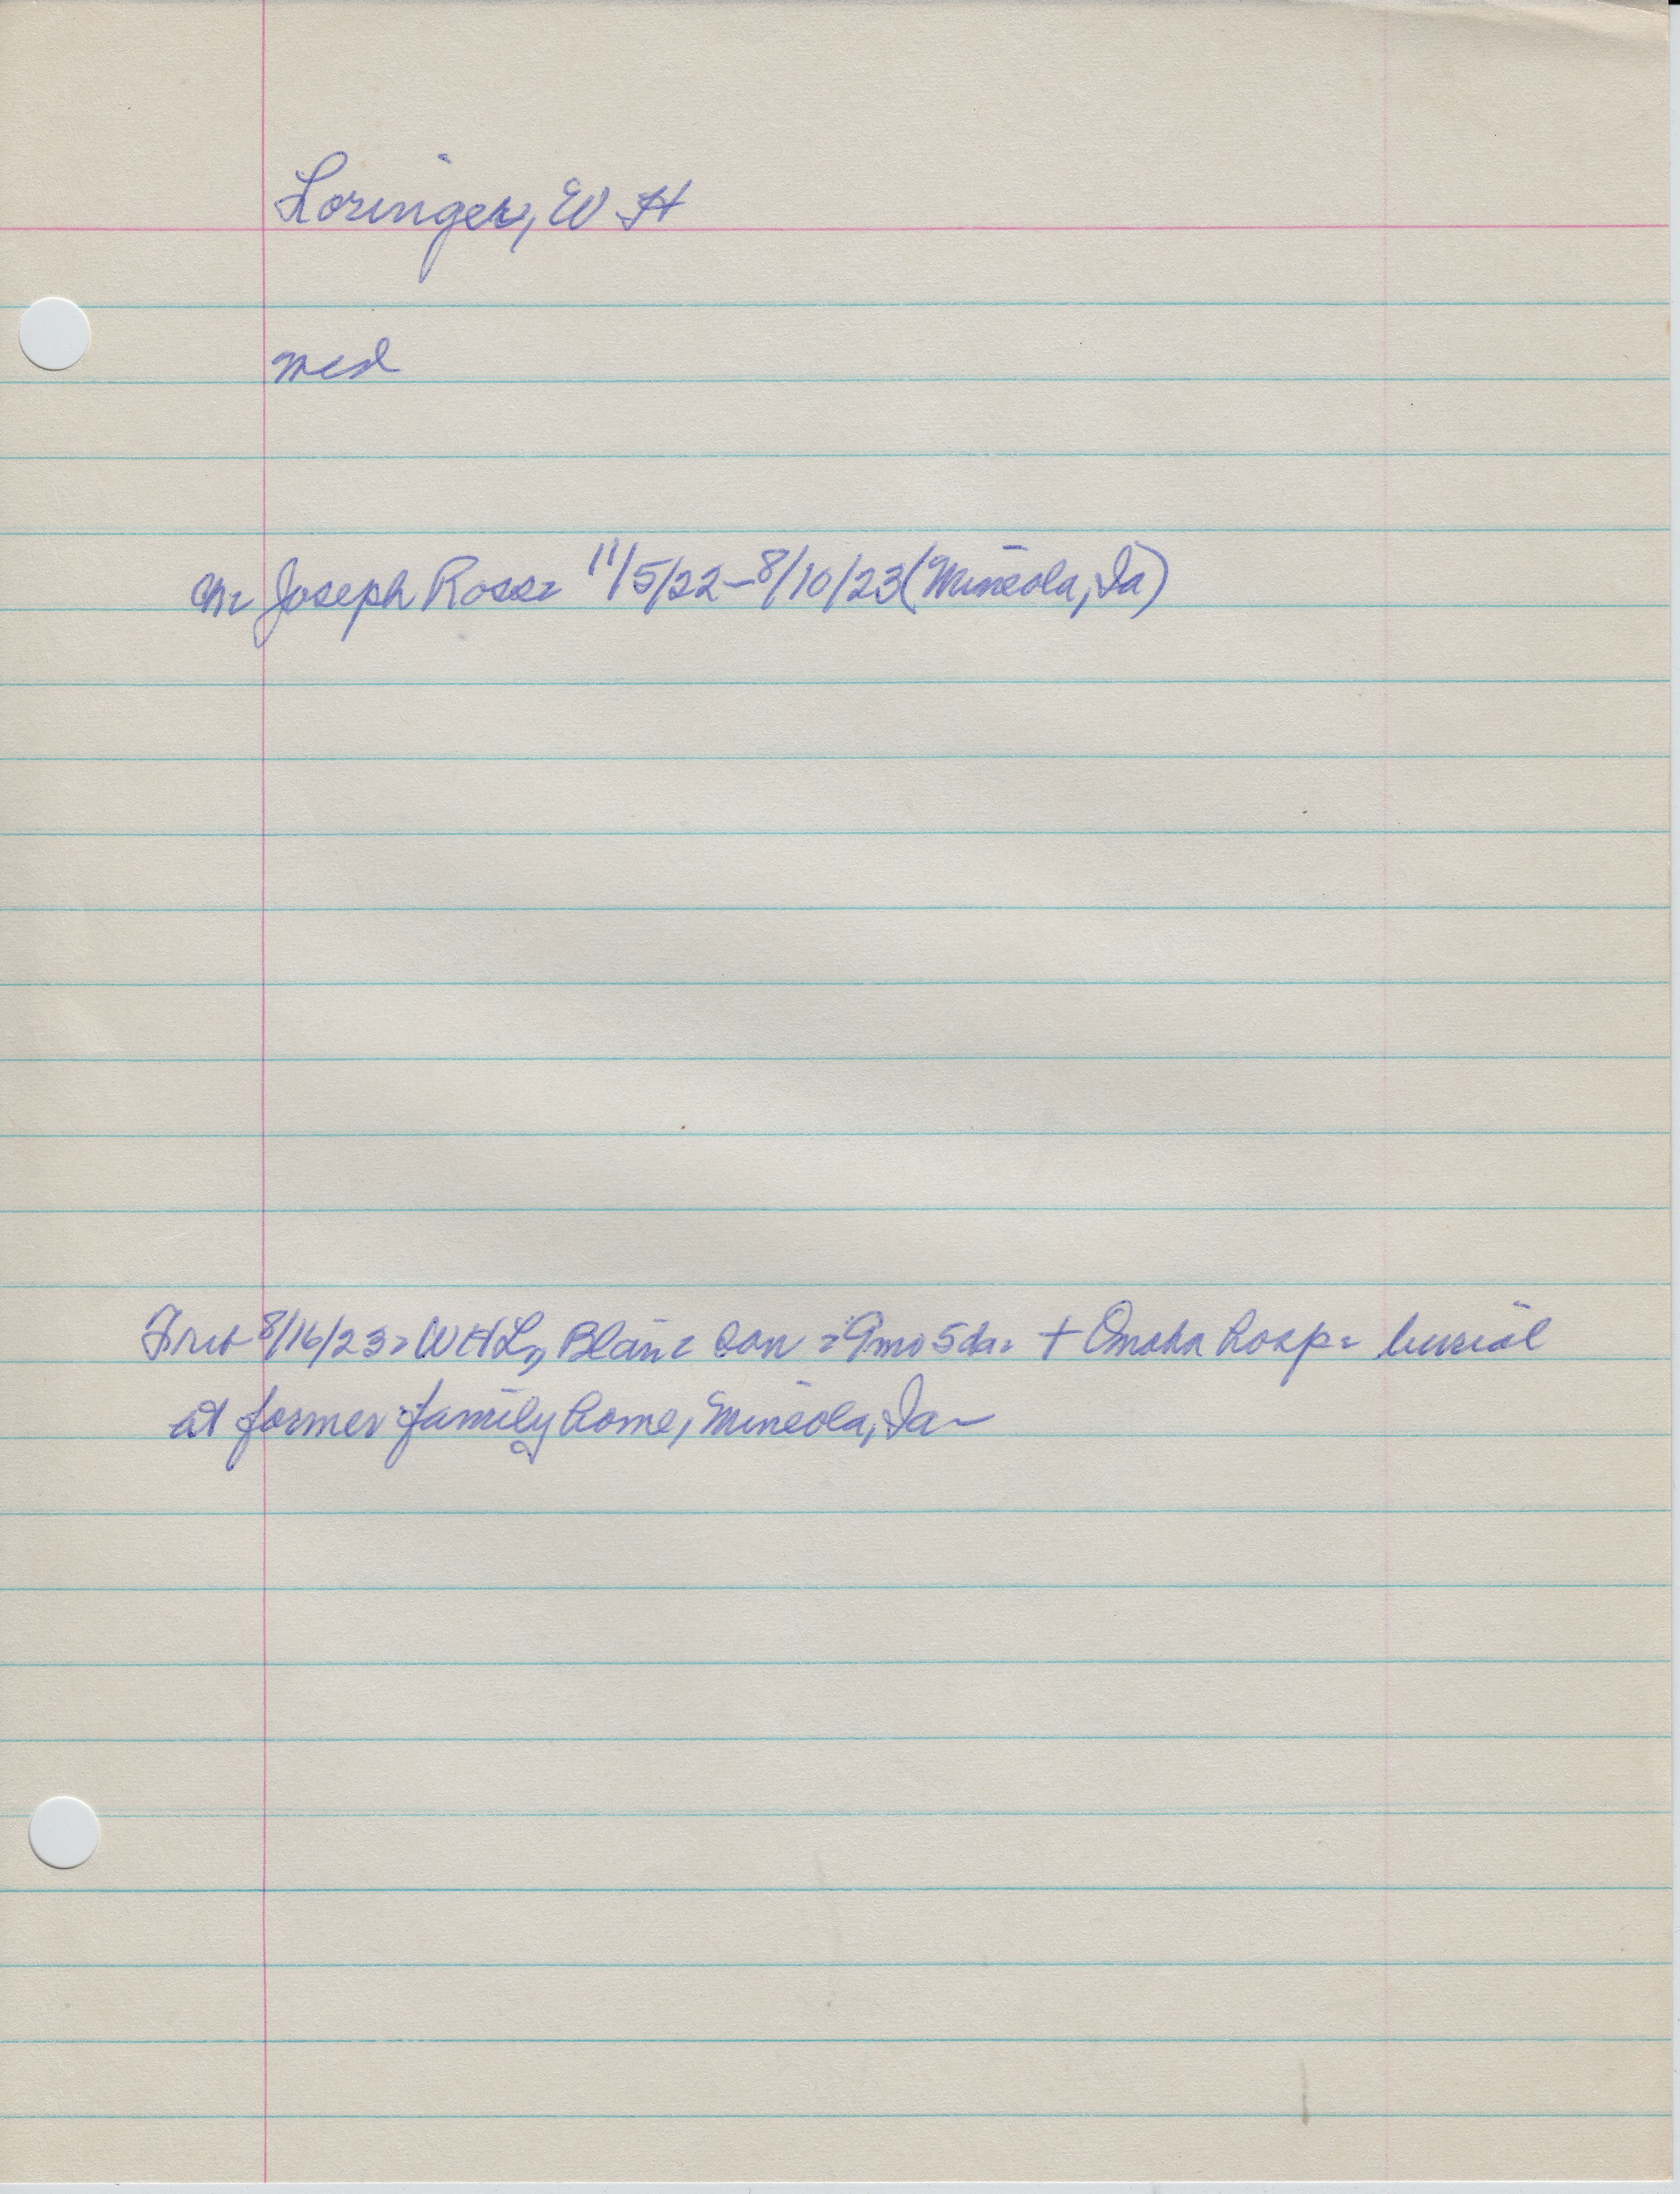 Loringer, W H
med
m= Joseph Ross= 11/5/22-8/10/23 (Mineola, Ia)
Trib 8/16/23= WHL, Blair= son =9mo 5da= + Omaha hosp= burial
at former family home, Mineola, Ia-